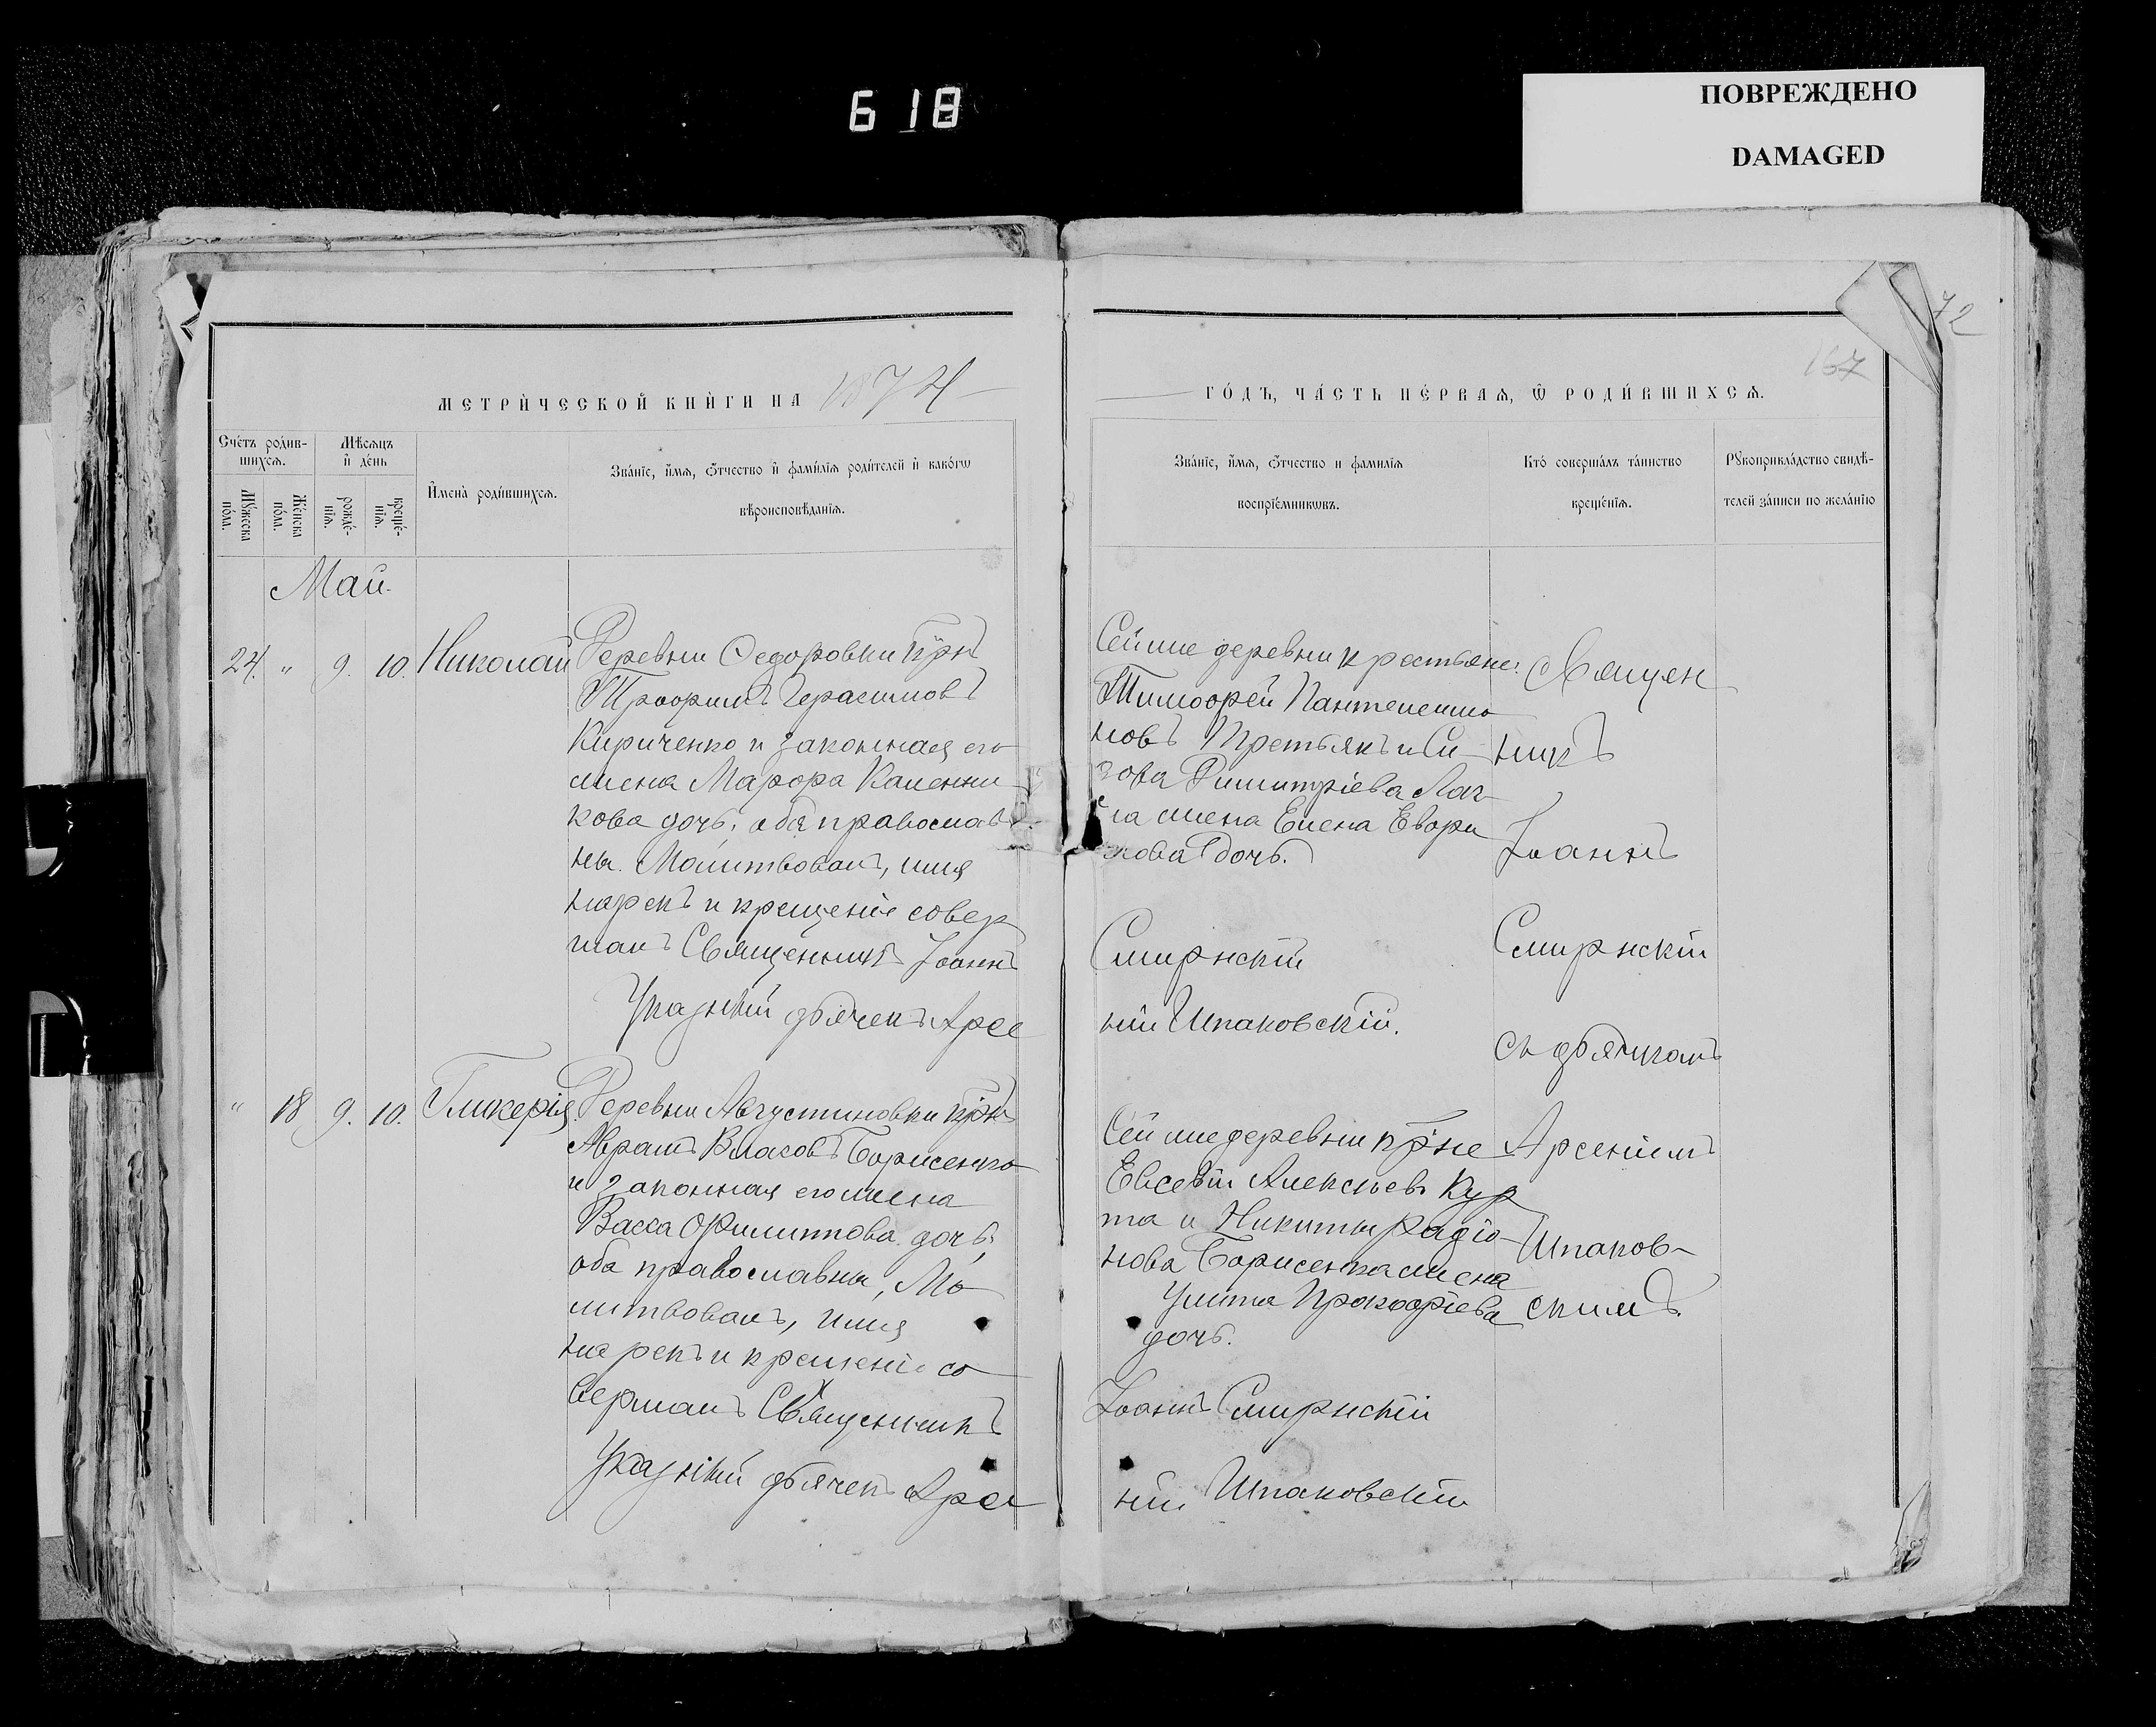 618
ПОВРЕЖДЕНО
DAMAGED
72
167
МЕТРИ́ЧЕСКОЙ КНИ́ГИ НА 1874
ГО́ДЪ, ЧА́СТЬ ПЕ́РВАѦ, Ѿ РОДИ́ВШИХСѦ.
Сче́тъ роди́в-
шихсѧ.
Мꙋ́жеска
по́ла.
Же́нска
по́ла.
Мѣ́сѧцъ
и҆ де́нь
рожде́-
нїѧ.
креще́-
нїѧ.
И҆мена̀ роди́вшихсѧ.
Зва́нїе, и҆́мѧ, ѻ҆́тчество и҆ фами́лїѧ роди́телей и҆ како́гѡ
вѣроисповѣ́данїѧ.
Зва́нїе, и҆́мѧ, ѻ҆́тчество и фамилїѧ
воспрїе́мникѡвъ.
Кто̀ соверша́лъ та́инство
креще́нїѧ.
Рꙋкоприкла́дство свидѣ́-
телей за́писи по жела́нїю
Май.
24. " 9. 10. Николай
Деревни Федоровки крн
Трофимъ Герасимовъ
Кириченко и законная его
жена Марфа Калинни
кова дочь, оба православ
ны. Молитвовалъ, имя
нарекъ и крещеніе совер
шалъ Священникъ Іоаннъ
Указный дьячекъ Арсе
Сей же деревни крестьяне:
Тимофей Пантелеимо
новъ Третьякъ и
Димитріева
жена Елена
дочь.
Смирнскій
ній Шпаковскій.
Священ
никъ
Іоаннъ
Смирнскій
съ дьячкомъ
Арсеніемъ
Шпаков-
скимъ.
" 18 9. 10. Гликерія
Деревни Августиновки крн
Аврамъ Власовъ Борисенко
и законная его жена
Васса Филиппова дочь,
оба православны, Мо
литвовалъ, имя
нарекъ и крещеніе со
вершалъ Священникъ
Указный дьячекъ Арсе
Сей же деревни крне
Евсевій Алексѣевъ Кур
та и Никиты Радіо
нова Борисенка жена
Улита Прокофіева
дочь.
Іоаннъ Смирнскій
ній Шпаковскій